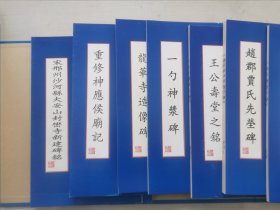 宋邢州沙河縣大安山封巒寺新建碑銘
重修神應侯廟記
龍華寺造像碑
一勺神漿碑
王公壽堂之銘
趙郡賈氏先塋碑